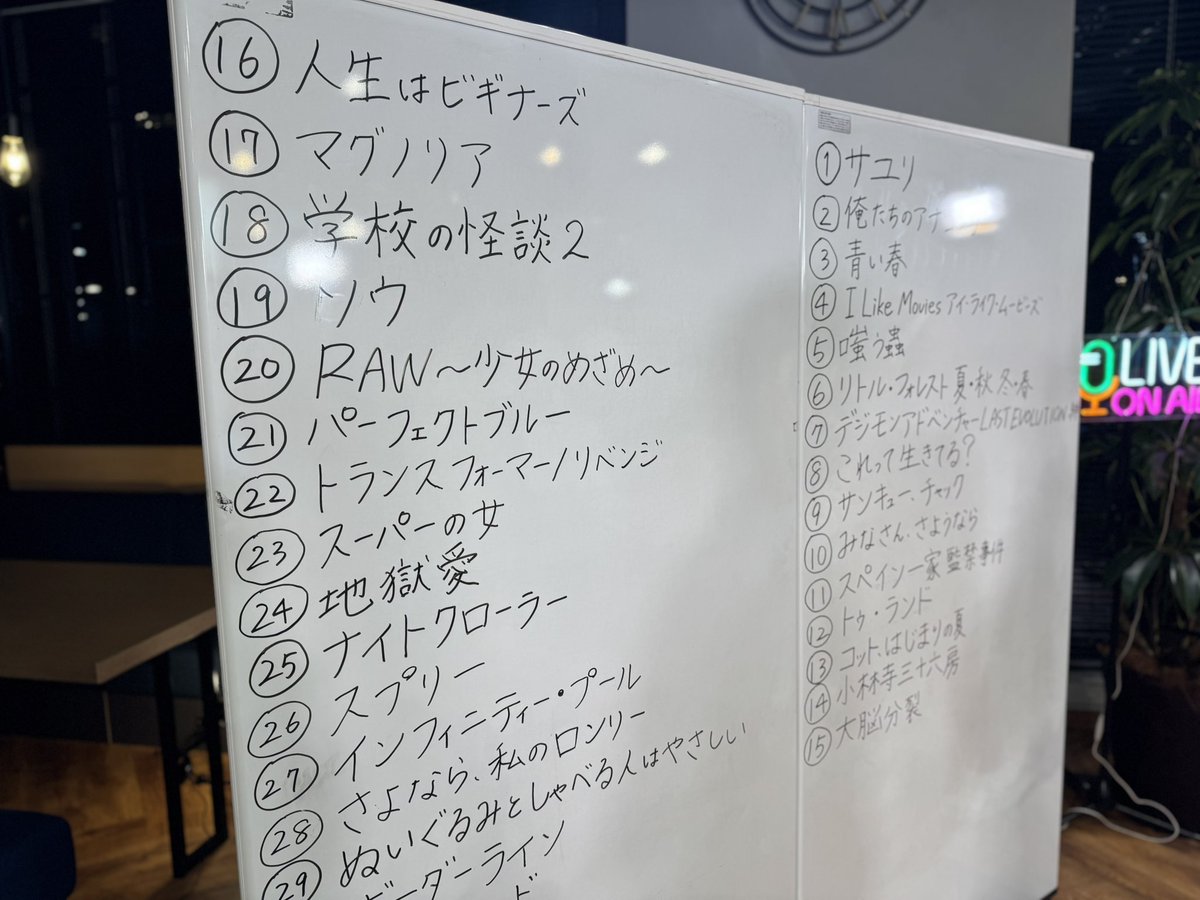 ⑯ 人生はビギナーズ
⑰ マグノリア
⑱ 学校の怪談2
⑲ ソウ
⑳ RAW～少女のめざめ～
㉑ パーフェクトブルー
㉒ トランスフォーマー/リベンジ
㉓ スーパーの女
㉔ 地獄愛
㉕ ナイトクローラー
㉖ スプリー
㉗ インフィニティー・プール
㉘ さよなら、私のロンリー
㉙ ぬいぐるみとしゃべる人はやさしい
ボーダーライン
① サユリ
② 俺たちのアナ
③ 青い春
④ I Like Movies アイ・ライク・ムービーズ
⑤ 嗤う蟲
⑥ リトル・フォレスト 夏・秋 冬・春
⑦ デジモンアドベンチャー LAST EVOLUTION 絆
⑧ これって生きてる?
⑨ サンキュー、チャック
⑩ みなさん、さようなら
⑪ スペイン一家監禁事件
⑫ トゥ・ランド
⑬ コット、はじまりの夏
⑭ 小林寺三十六房
⑮ 大脳分裂
LIVE
ON AIR